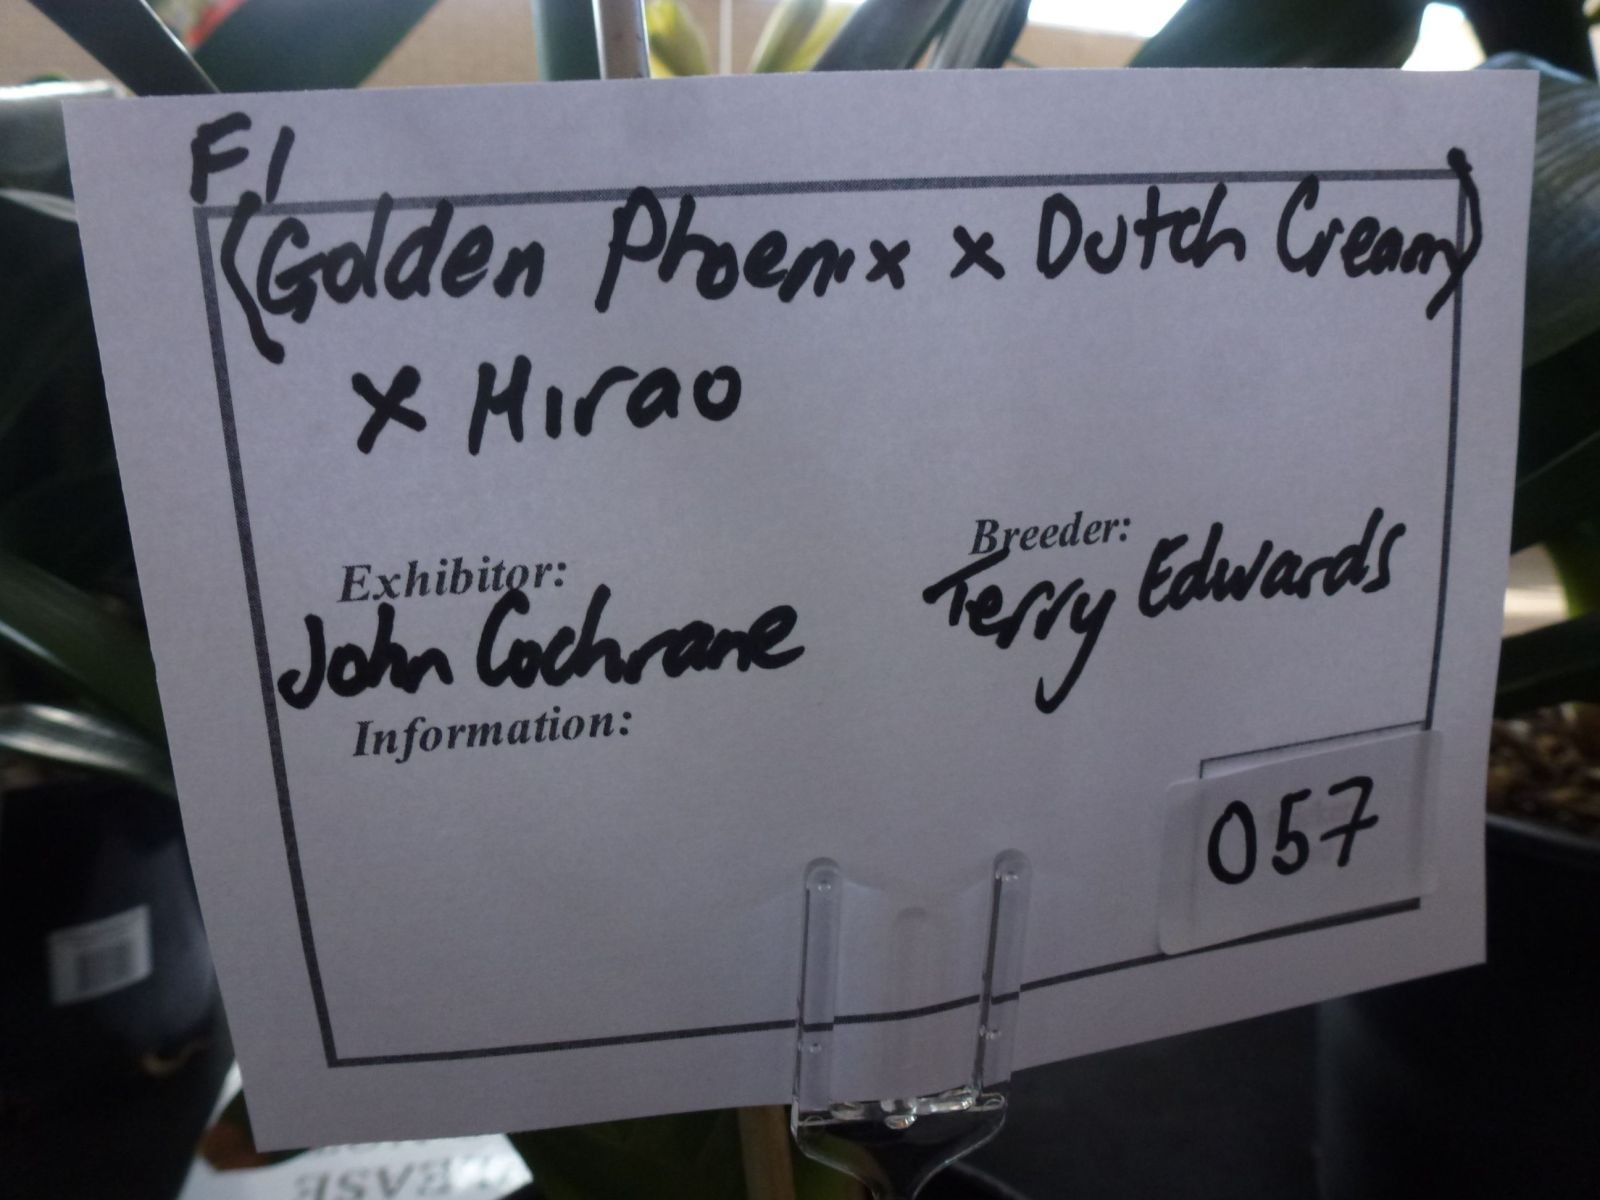 F1
(Golden Phoenix x Dutch Cream)
x Hirao
Exhibitor:
John Cochrane
Breeder:
Terry Edwards
Information:
057